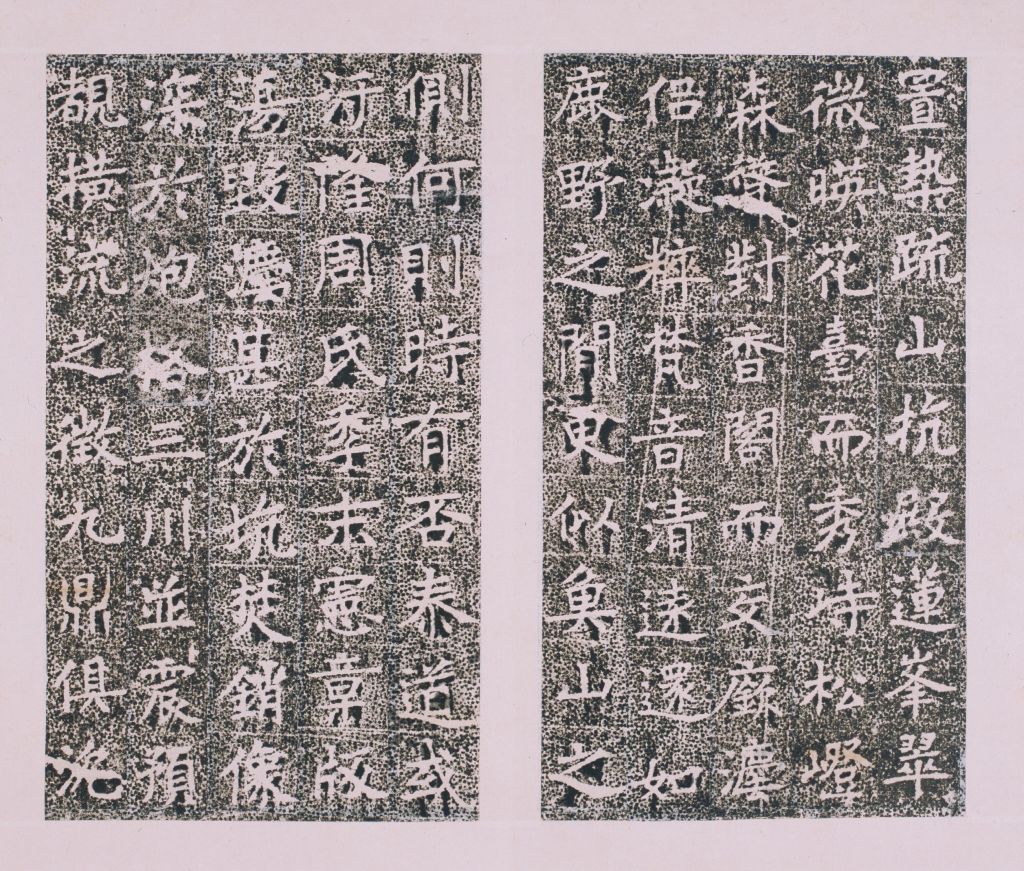 置槷疏山抗殿蓮峯翠
微暎花臺而秀峙松嶝
森聳對香閣而交塵
侶凝粹梵音清遠還如
鹿野之間更似魚山之
側何則時有否泰道或
汙隆周氏季末憲章版
蕩毀灋甚於坑焚銷像
深於炮格三川並震預
覩橫流之徵九鼎俱淪